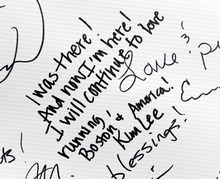 I was there!
And now I'm here!
I will continue to love
running!
Boston & America!
Kim Lee
blessings!
Love